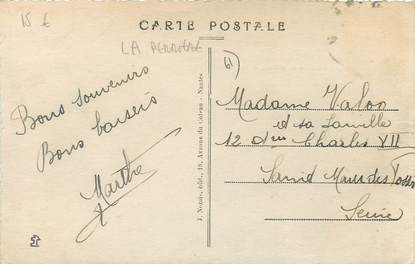 15 €
CARTE POSTALE
LA
61
Bons souvenirs
Bons baisers
Marthe
J. Nozais, édit., 18, Avenue du Coteau - Nantes
Madame Valon
et sa famille
12 Charles VII
Saint Maur des Fossés
Seine